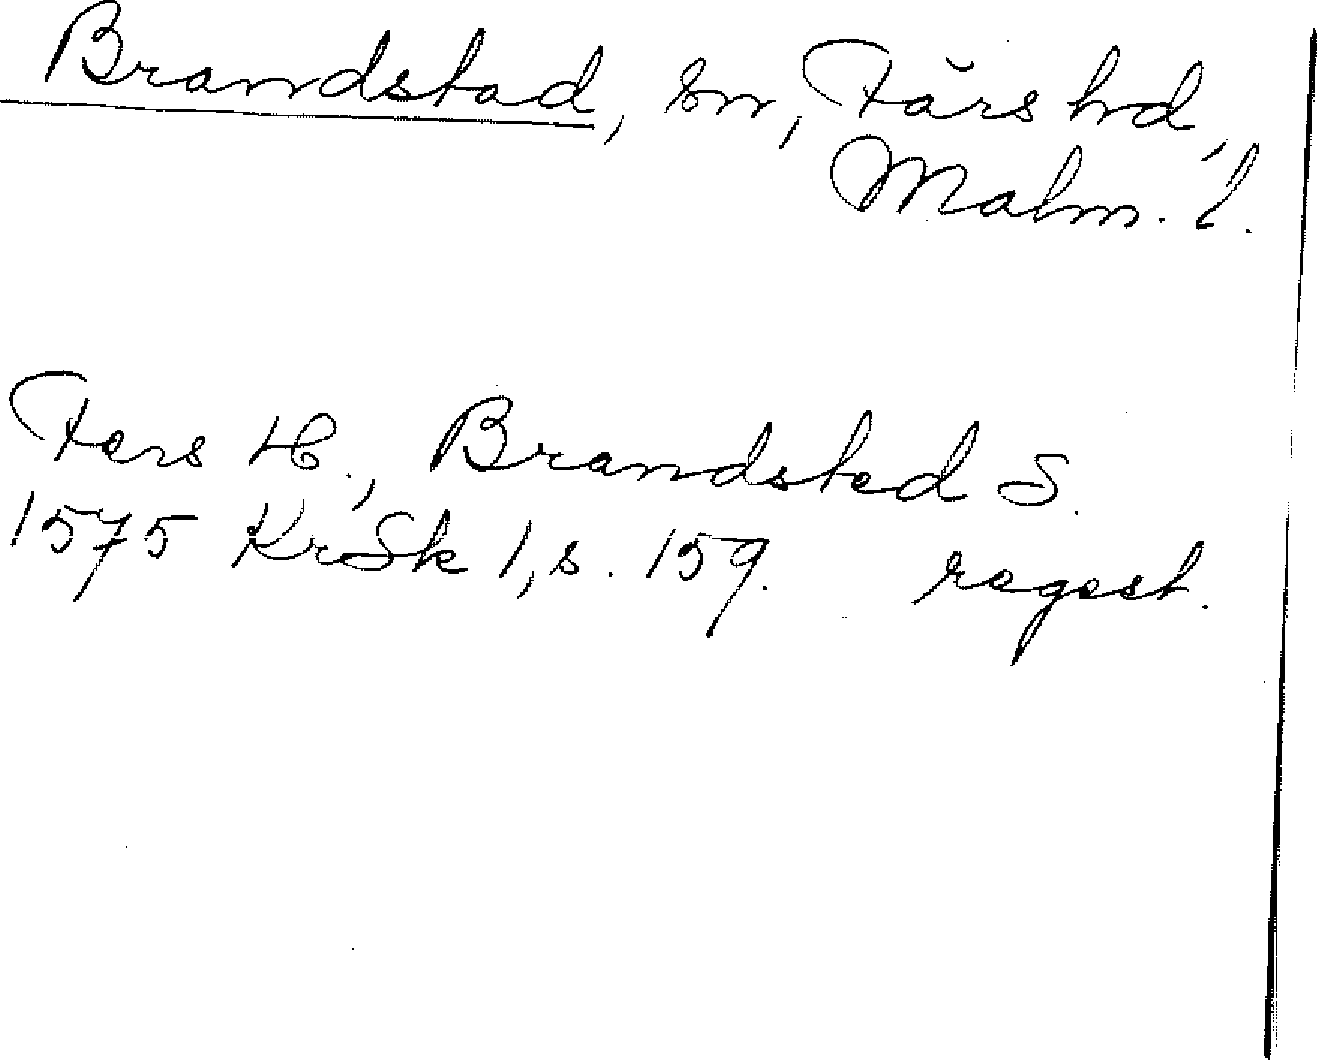 Brandstad, sn, Färs hd,
Malm. l.
Fers H., Brandsted S.
1575 KrSk 1, s. 159. regest.